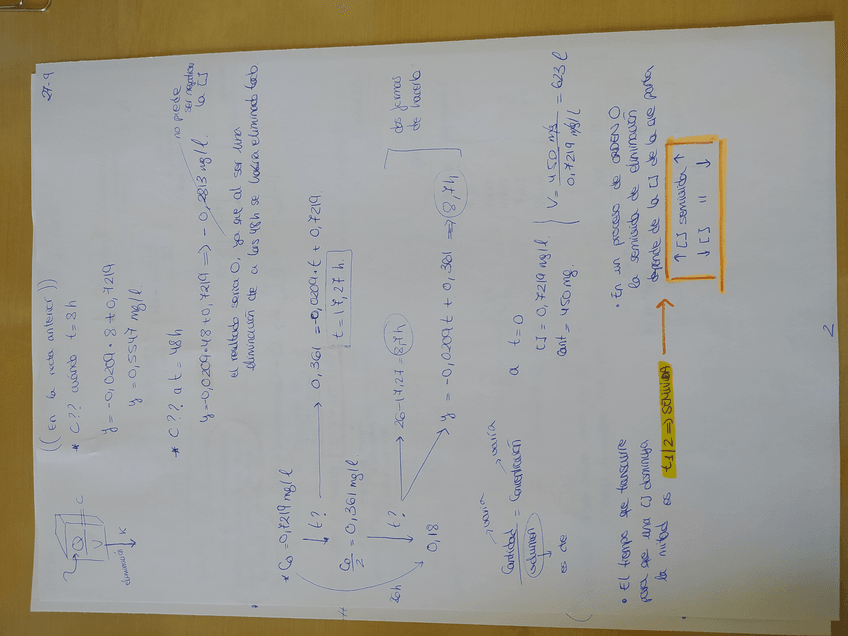 27-9
((En la recta anterior))
Q
V
C
K
eliminación
* C?? cuándo t=8h
y=-0,0209·8+0,7219
y=0,5547 mg/l
* C?? a t=48h
y=-0,0209·48+0,7219 => -0,2813 mg/l
no puede
ser negativa
la []
el resultado sería 0, ya que al ser una
eliminación de a las 48h se habría eliminado todo.
* C0=0,7219 mg/l
t? → 0,361 = -0,0209·t+0,7219
t=17,27 h.
C0/2 = 0,361 mg/l
t? → 26-17,27=8,7h
dos formas
de hacerlo.
26h
0,18
y=-0,0209t+0,361 => 8,7h
varía
varía
Cantidad/volumen = Concentración
es de
a t=0
[]=0,7219 mg/l.
Cant=450mg.
V=450 mg/0,7219 mg/l = 623 l
• El tiempo que transcurre
para que una [] disminuya
la mitad es t1/2 => SEMIVIDA
• En un proceso de ORDEN 0
la semivida de eliminación
depende de la [] de la que parta
↑[] semivida ↑
↓[] " ↓
2